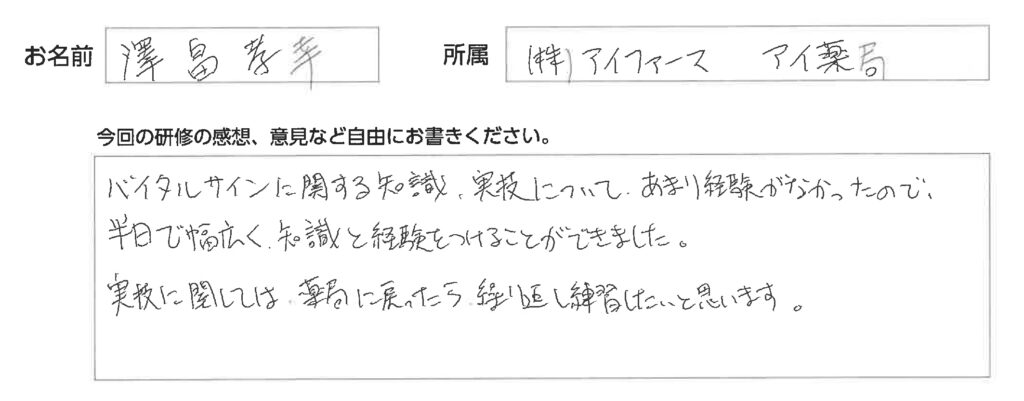 お名前 澤畠孝幸 所属 (株)アイファース アイ薬局
今回の研修の感想、意見など自由にお書きください。
バイタルサインに関する知識、実技について、あまり経験がなかったので、
半日で幅広く、知識と経験をつけることができました。
実技に関しては、薬局に戻ったら、繰り返し練習したいと思います。